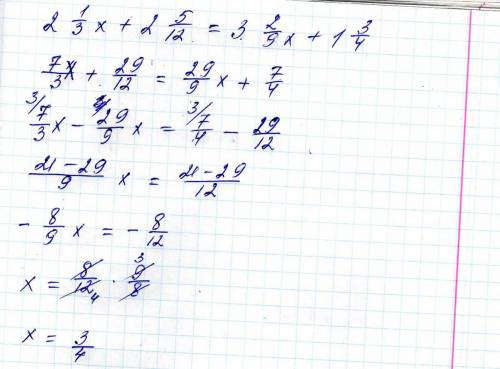 2 1/3 x + 2 5/12 = 3 2/9 x + 1 3/4
7x/3 + 29/12 = 29/9 x + 7/4
3/ 7/3 x - 29/9 x = 3/ 7/4 - 29/12
21-29/9 x = 21-29/12
- 8/9 x = - 8/12
x = 8/12 4 · 3 9/8
x = 3/4